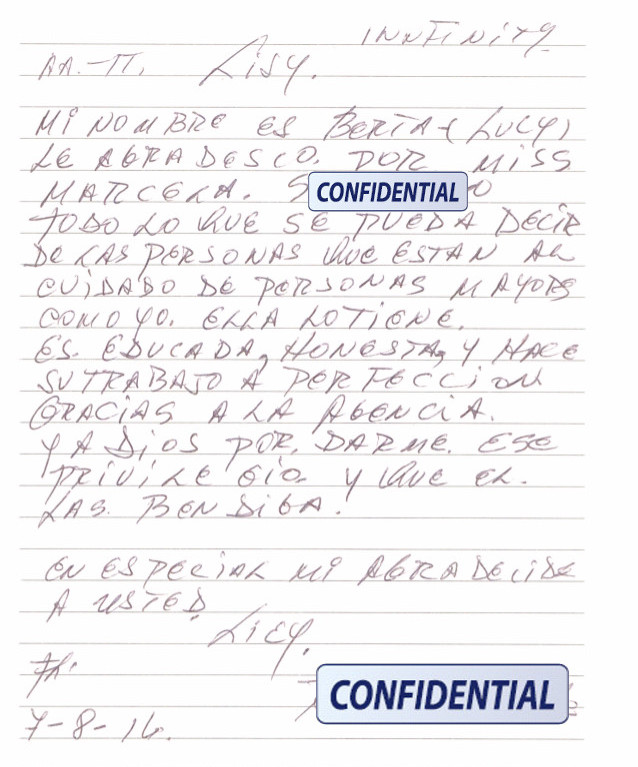 INNFINITY
AA.-TT. LISY.
MI NOMBRE ES BERTA-(LUCY)
LE AGRADESCO. POR MISS
MARCELA. CONFIDENTIAL
TODO LO QUE SE PUEDA DECIR
DE LAS PERSONAS QUE ESTAN AL
CUIDADO DE PERSONAS MAYORES
COMO YO. ELLA LO TIENE.
ES. EDUCADA, HONESTA, Y HACE
SU TRABAJO A PERFECCION
GRACIAS A LA AGENCIA.
Y A DIOS POR. DARME. ESE
PRIVILEGIO. Y QUE EL.
LAS. BENDIGA!
EN ESPECIAL MI AGRADECIDE
A USTED
LICY.
CONFIDENTIAL
7-8-16.